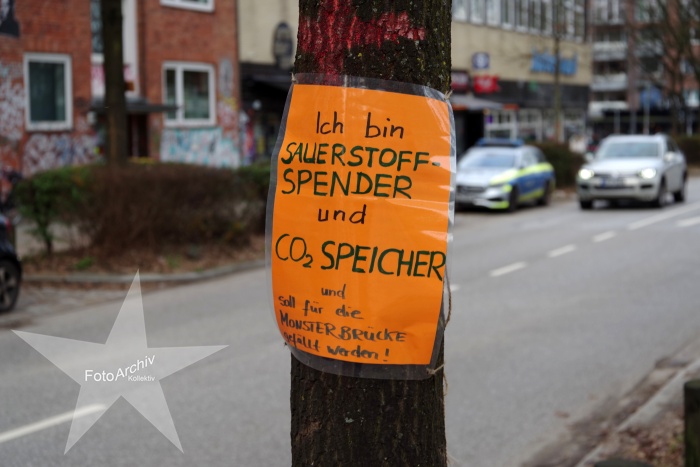 Ich bin
SAUERSTOFF-
SPENDER
und
CO₂ SPEICHER
und
soll für die
MONSTERBRÜCKE
gefällt werden!
FotoArchiv
Kollektiv